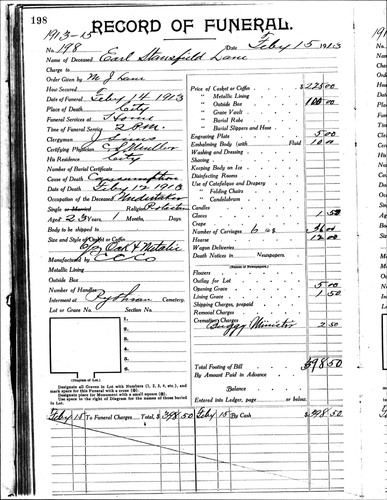 198
RECORD OF FUNERAL.
1913-15
No. 198 Date Feby 15 1913
Name of Deceased Earl Stansfield Lane
Charge to
Order Given by M J Lane
How Secured
Date of Funeral Feby 14 1913
Place of Death City
Funeral Services at Home
Time of Funeral Service 2 P.M.
Clergyman
Certifying Physician
His Residence City
Number of Burial Certificate
Cause of Death Consumption
Date of Death Feby 12 1913
Occupation of the Deceased
Single or Married Religion
Aged 23 Years, 1 Months, Days
Body to be shipped to
Size and Style of Casket or Coffin
Oak & Metalic
Manufactured by C O CO
Metallic Lining
Outside Box
Number of Handles
Interment at Pythian Cemetery.
Lot or Grave No. Section No.
1.
2.
3.
4.
5.
6.
(Diagram of Lot.)
Designate all Graves in Lot with Numbers (1, 2, 3, 4, etc.), and
mark space for this Funeral with a cross
Designate place for Monument with a small square
Use space to the right of Diagram for the names of those buried
in Lot.
Price of Casket or Coffin $ 225 00
" Metallic Lining
" Outside Box 100 00
" Grave Vault
" Burial Robe
" Burial Slippers and Hose
Engraving Plate 5 00
Embalming Body (with Fluid 10 00
Washing and Dressing
Shaving
Keeping Body on Ice
Disinfecting Rooms
Use of Catafalque and Drapery
" Folding Chairs
" Candelabrum
Candles
Gloves 1 50
Crape
Number of Carriages 6 36 00
Hearse 12 00
Wagon Deliveries
Death Notices in Newspapers.
(Names of Newspapers)
Flowers
Outlay for Lot
Opening Grave 5 00
Lining Grave 1 50
Shipping Charges, prepaid
Removal Charges
Cremation Charges
Buggy Minister 2 50
Total Footing of Bill $ 398 50
By Amount Paid in Advance
Balance
Entered into Ledger, page or below.
Feby 15 To Funeral Charges Total, $ 398 50 Feby 15 By Cash $ 398 50